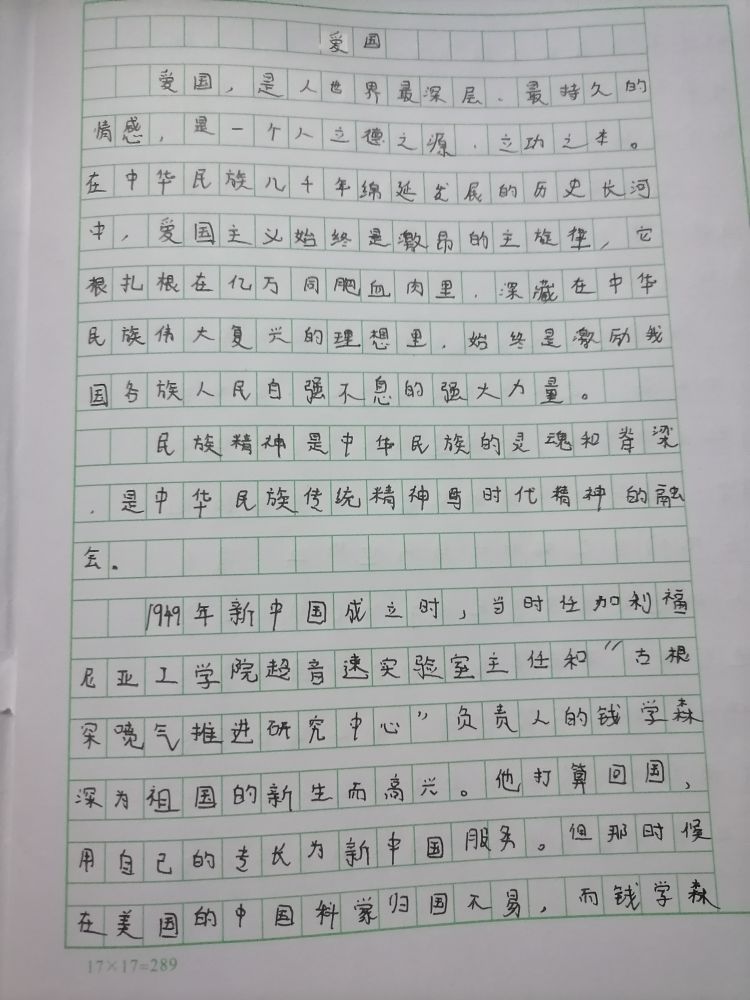 爱国
爱国，是人世界最深层、最持久的
情感，是一个人立德之源、立功之本。
在中华民族几千年绵延发展的历史长河
中，爱国主义始终是激昂的主旋律，它
根扎根在亿万同肥血肉里、深藏在中华
民族伟大复兴的理想里，始终是激励我
国各族人民自强不息的强大力量。
民族精神是中华民族的灵魂和脊梁
，是中华民族传统精神与时代精神的融
会。
1949年新中国成立时，当时任加利福
尼亚工学院超音速实验室主任和“古根
深喷气推进研究中心”负责人的钱学森
深为祖国的新生而高兴。他打算回国，
用自己的专长为新中国服务。但那时候
在美国的中国科学家归国不易，而钱学森
17×17=289